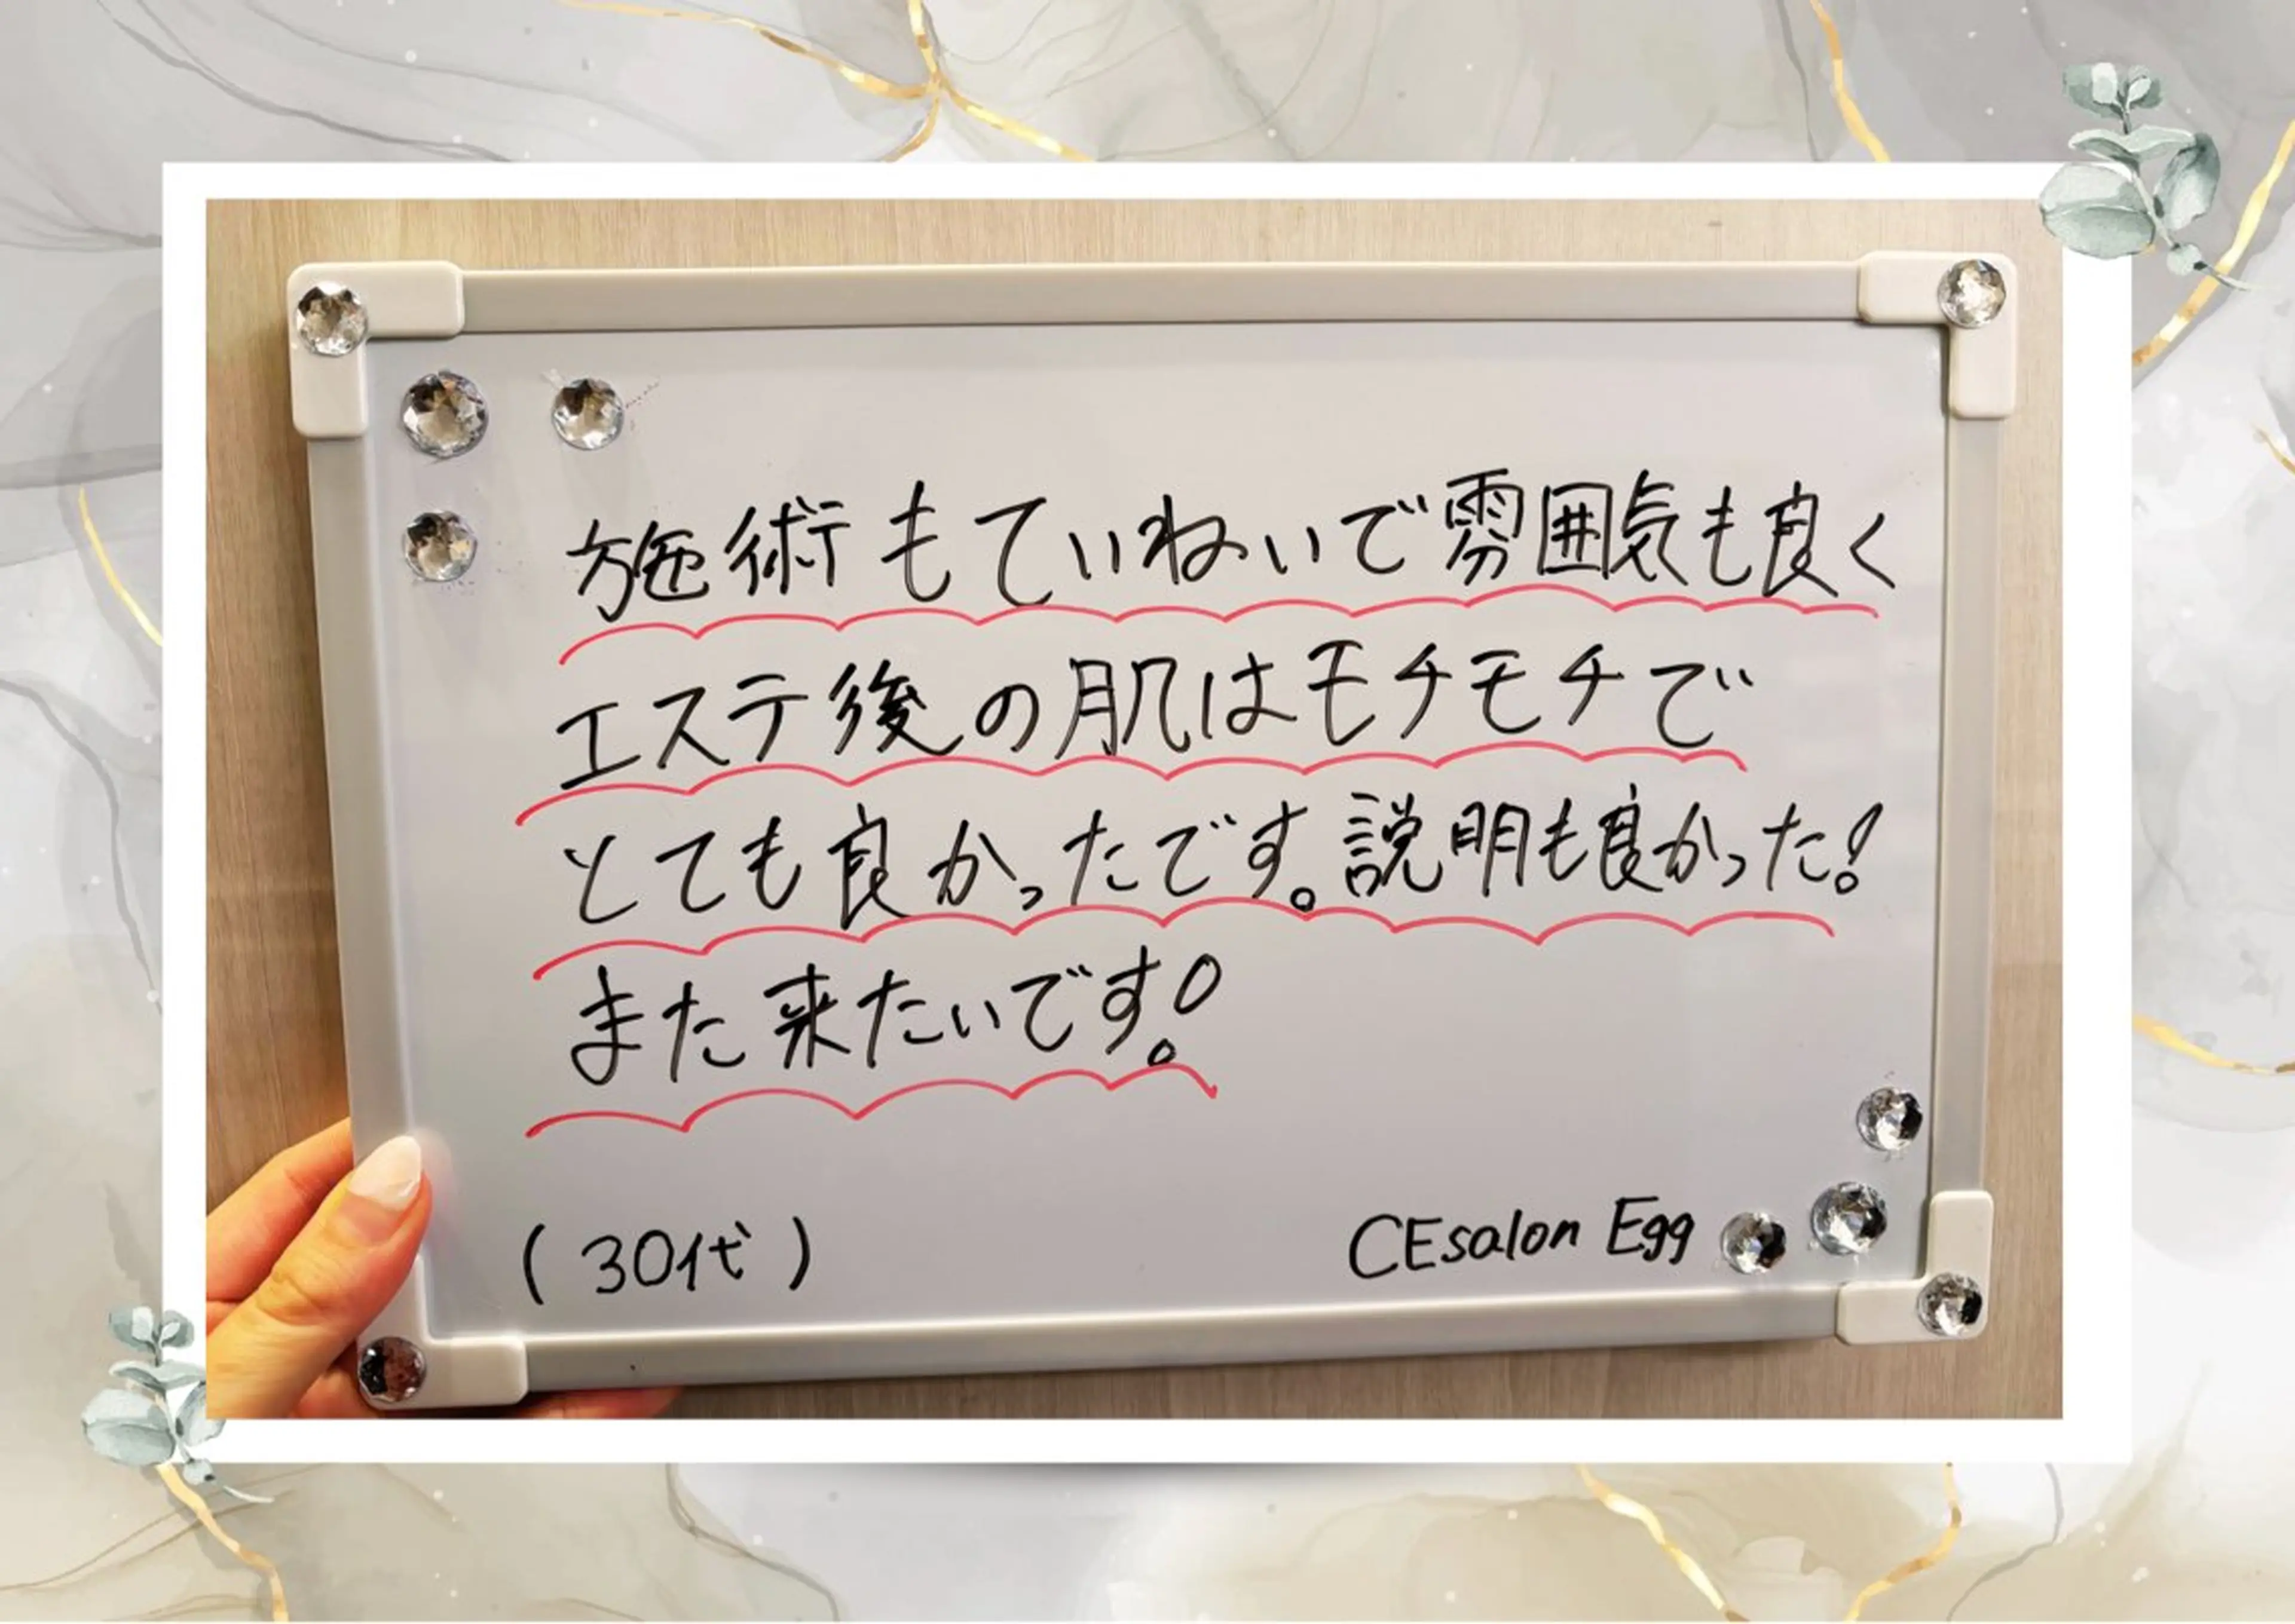 施術もていねいで雰囲気も良く
エステ後の肌はモチモチで
とても良かったです。説明も良かった!
また来たいです!
(30代)
CEsalon Egg